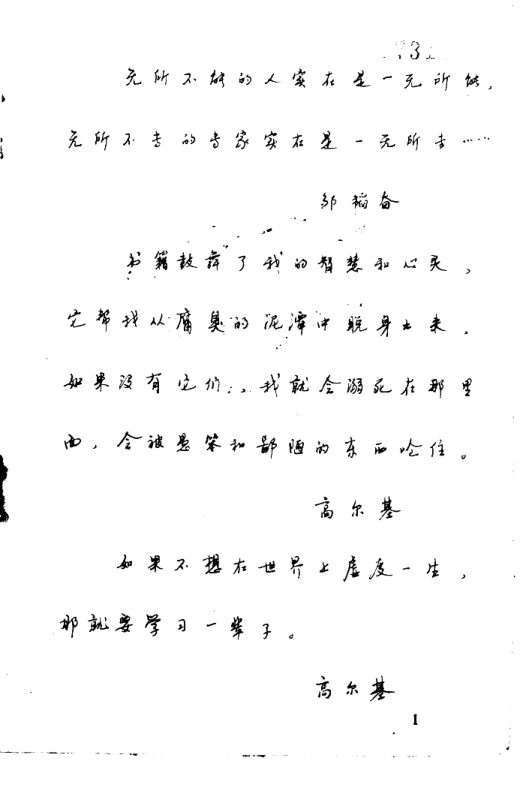 731
无所不能的人实在是一无所能，
无所不专的专家实在是一无所专……
邹韬奋
书籍鼓舞了我的智慧和心灵，
它帮我从腐臭的泥潭中脱身出来，
如果没有它们，我就会溺死在那里
面，会被愚笨和鄙陋的东西呛住。
高尔基
如果不想在世界上虚度一生，
那就要学习一辈子。
高尔基
1